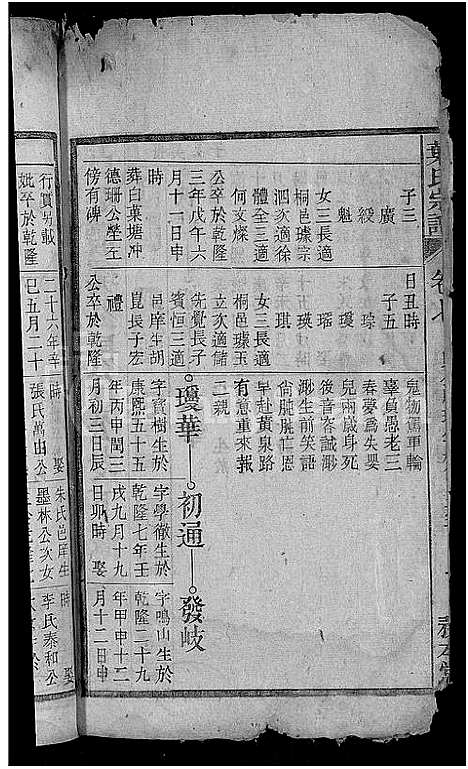 葉氏宗譜
卷
子三
廣
毅
魁
女三長適
桐邑璩宗
泗次適徐
體全三適
何文燦
公卒於乾隆
三年戊午六
月十一日申
時
葬白葉塘冲
德珊公塋左
傍有碑
日丑時
子五
琮
瓊
瑤
瑛
琪
女三長適
桐邑璩玉
立次適儲
先覺長子
賓恒三適
邑庠生胡
崑長子宏
禮
公卒於乾隆
辜負愚老三
春夢爲失嬰
兒兩歲身死
後音容誠渺
渺生前笑語
尚朧朧亡恩
早赴黃泉路
有意重來報
二親
瓊華
字寶樹生於
康熙五十五
年丙申閏三
月初三日辰
時
娶
張氏萬山公
初通
字學徵生於
乾隆七年壬
戌九月十九
日卯時
娶
朱氏邑庠生
墨林公次女
發岐
字鳴山生於
乾隆二十九
年甲申十二
月十二日申
時
娶
李氏泰和公
行實另載
妣卒於乾隆
二十六年辛
巳五月二十